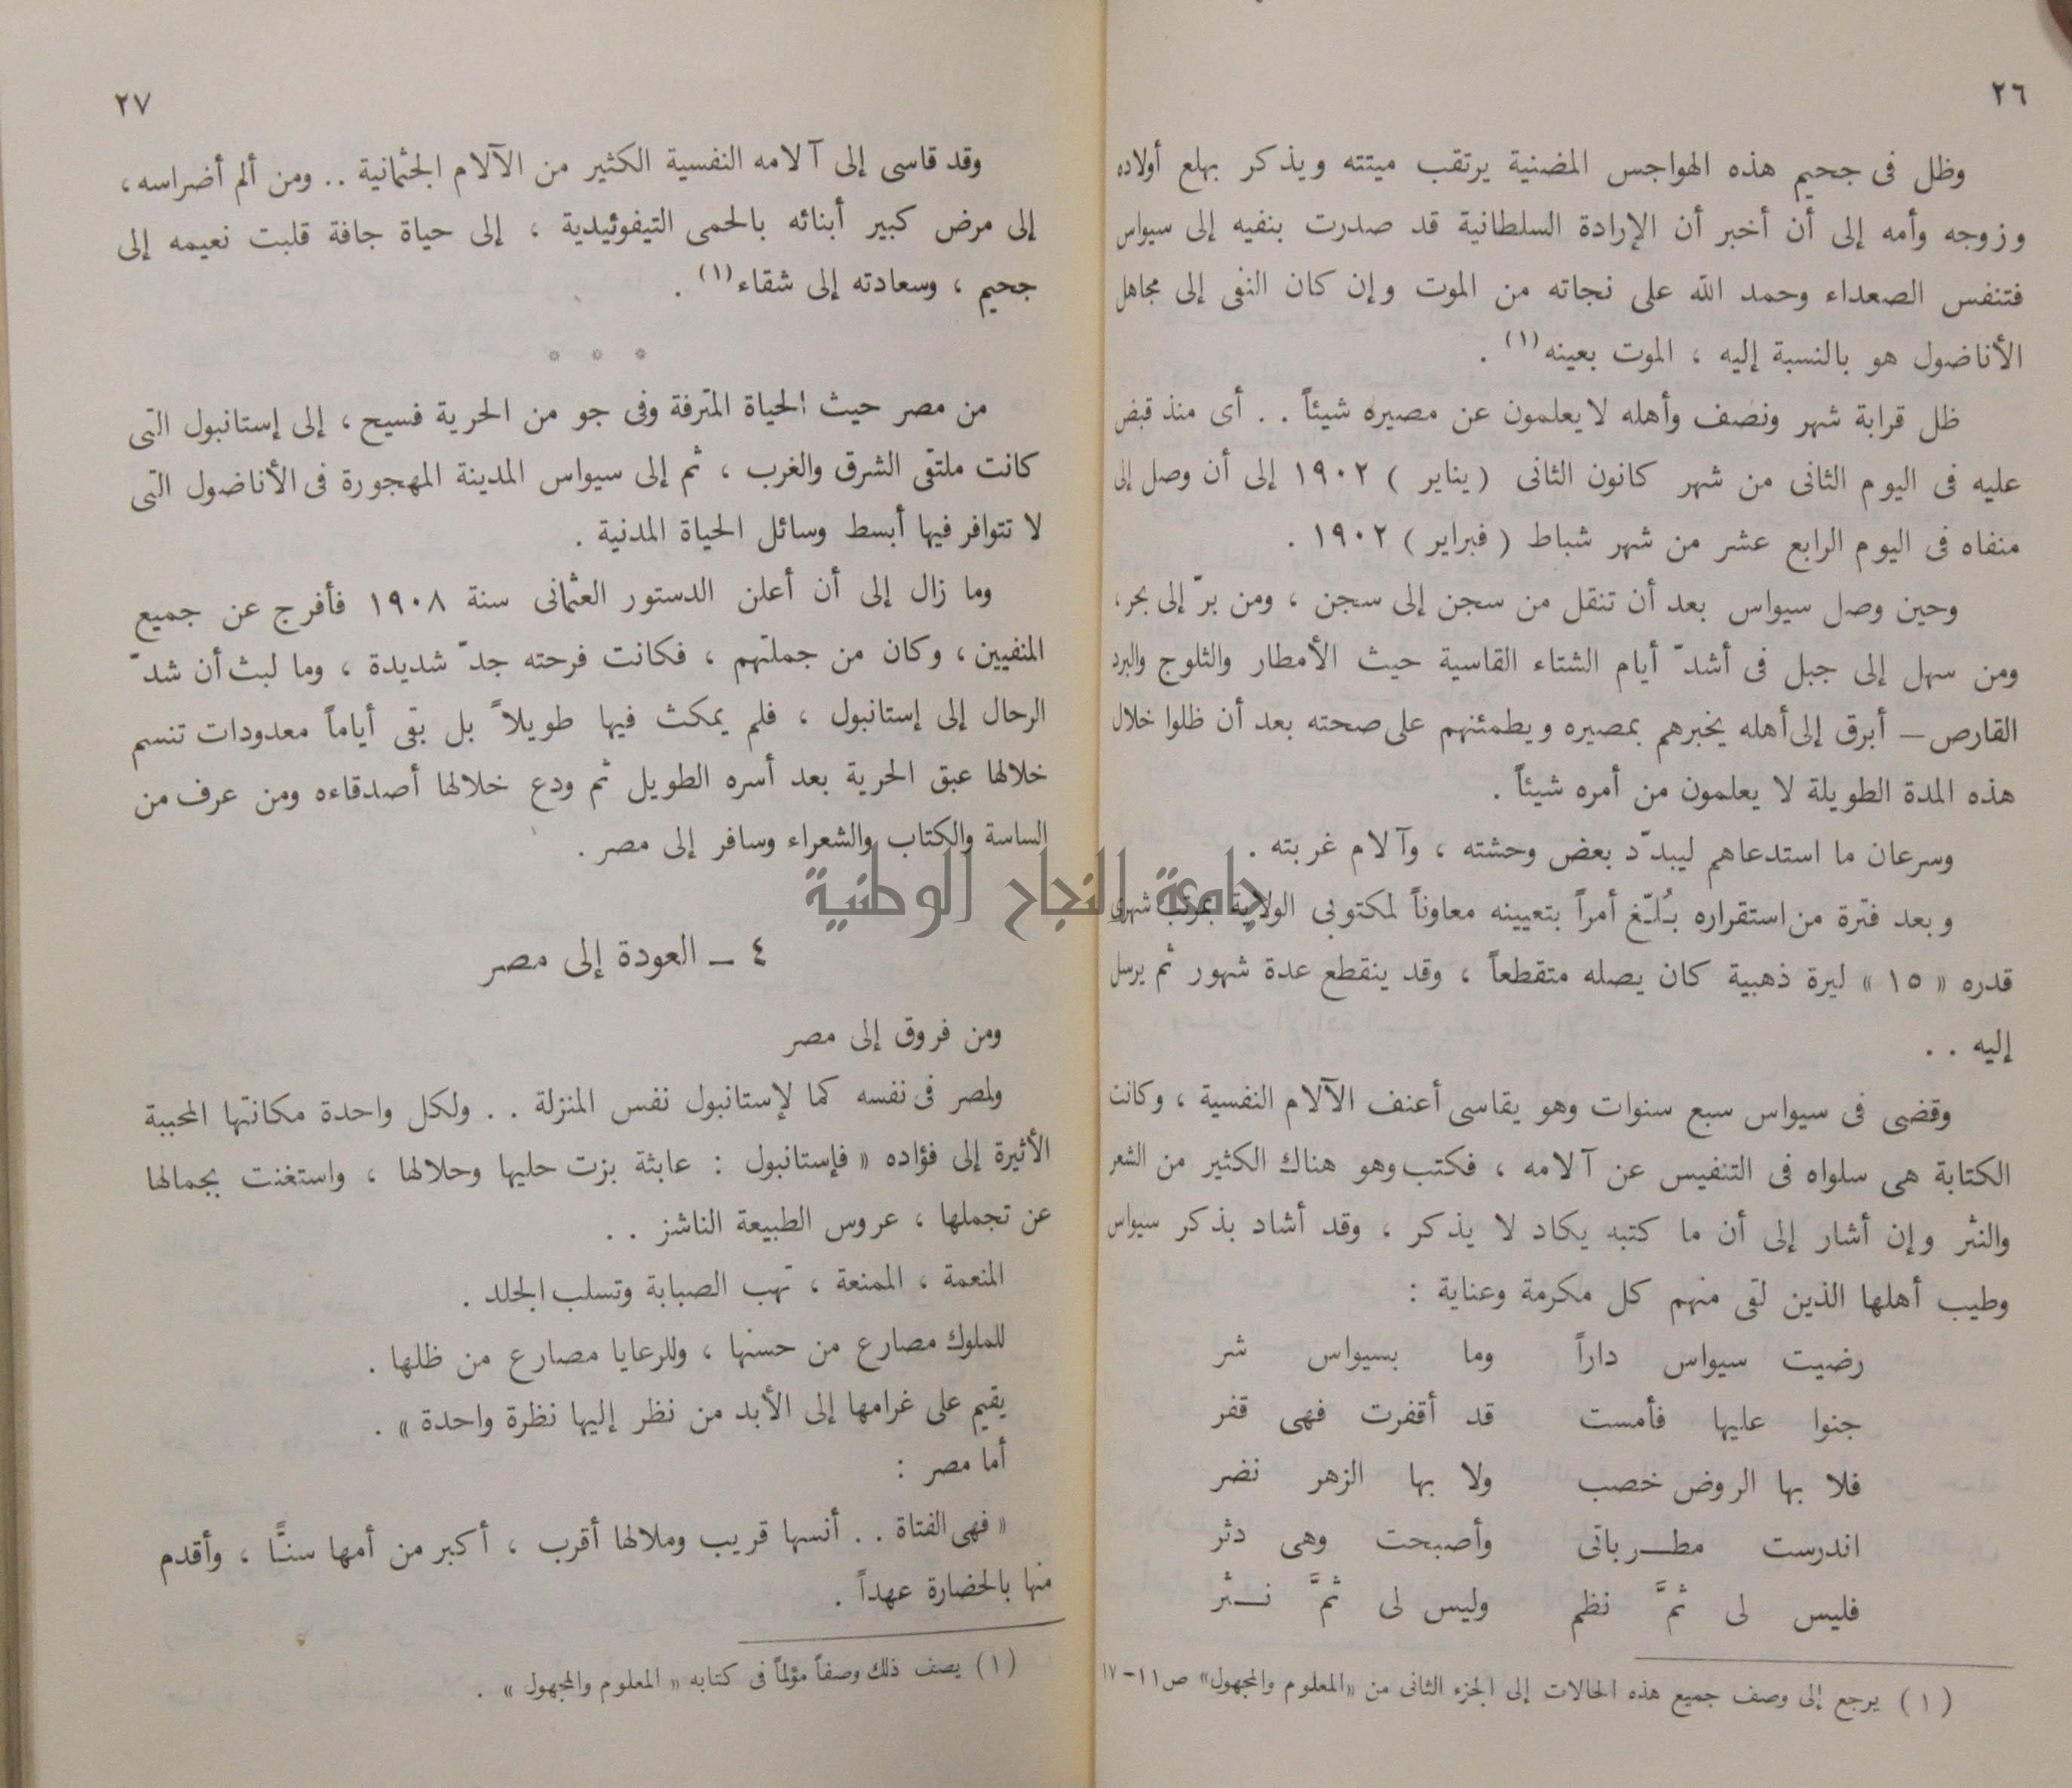 ٢٦
وظل فى جحيم هذه الهواجس المضنية يرتقب ميتته ويذكر بهلع أولاده
وزوجه وأمه إلى أن أخبر أن الإرادة السلطانية قد صدرت بنفيه إلى سيواس
فتنفس الصعداء وحمد الله على نجاته من الموت وإن كان النفى إلى مجاهل
الأناضول هو بالنسبة إليه ، الموت بعينه(١) .
ظل قرابة شهر ونصف وأهله لا يعلمون عن مصيره شيئاً . . أى منذ قبض
عليه فى اليوم الثانى من شهر كانون الثانى ( يناير ) ١٩٠٢ إلى أن وصل إلى
منفاه فى اليوم الرابع عشر من شهر شباط ( فبراير ) ١٩٠٢ .
وحين وصل سيواس بعد أن تنقل من سجن إلى سجن ، ومن برّ إلى بحر ،
ومن سهل إلى جبل فى أشدّ أيام الشتاء القاسية حيث الأمطار والثلوج والبرد
القارص – أبرق إلى أهله يخبرهم بمصيره ويطمئنهم على صحته بعد أن ظلوا خلال
هذه المدة الطويلة لا يعلمون من أمره شيئاً .
وسرعان ما استدعاهم ليبدّد بعض وحشته ، وآلام غربته .
وبعد فترة من استقراره بُلّغ أمراً بتعيينه معاوناً لمكتوبى الولاية بمرتب شهرى
قدره « ١٥ » ليرة ذهبية كان يصله متقطعاً ، وقد ينقطع عدة شهور ثم يرسل
إليه . .
وقضى فى سيواس سبع سنوات وهو يقاسى أعنف الآلام النفسية ، وكانت
الكتابة هى سلواه فى التنفيس عن آلامه ، فكتب وهو هناك الكثير من الشعر
والنثر وإن أشار إلى أن ما كتبه يكاد لا يذكر ، وقد أشاد بذكر سيواس
وطيب أهلها الذين لقى منهم كل مكرمة وعناية :
رضيت سيواس داراً وما بسيواس شر
جنوا عليها فأمست قد أقفرت فهى قفر
فلا بها الروض خصب ولا بها الزهر نضر
اندرست مطـرباتى وأصبحت وهى دثر
فليس لى ثمَّ نظم وليس لى ثمَّ نـثر
(١) يرجع إلى وصف جميع هذه الحالات إلى الجزء الثانى من «المعلوم والمجهول» ص١١-١٧
٢٧
وقد قاسى إلى آلامه النفسية الكثير من الآلام الجثمانية . . ومن ألم أضراسه ،
إلى مرض كبير أبنائه بالحمى التيفوئيدية ، إلى حياة جافة قلبت نعيمه إلى
جحيم ، وسعادته إلى شقاء(١) .
* * *
من مصر حيث الحياة المترفة وفى جو من الحرية فسيح ، إلى إستانبول التى
كانت ملتقى الشرق والغرب ، ثم إلى سيواس المدينة المهجورة فى الأناضول التى
لا تتوافر فيها أبسط وسائل الحياة المدنية .
وما زال إلى أن أعلن الدستور العثمانى سنة ١٩٠٨ فأفرج عن جميع
المنفيين ، وكان من جملتهم ، فكانت فرحته جدّ شديدة ، وما لبث أن شدّ
الرحال إلى إستانبول ، فلم يمكث فيها طويلاً بل بقى أياماً معدودات تنسم
خلالها عبق الحرية بعد أسره الطويل ثم ودع خلالها أصدقاءه ومن عرف من
الساسة والكتاب والشعراء وسافر إلى مصر .
جامعة النجاح الوطنية
٤ – العودة إلى مصر
ومن فروق إلى مصر
ولمصر فى نفسه كما لإستانبول نفس المنزلة . . ولكل واحدة مكانتها المحببة
الأثيرة إلى فؤاده « فإستانبول : عابثة بزت حليها وحلالها ، واستغنت بجمالها
عن تجملها ، عروس الطبيعة الناشز . .
المنعمة ، الممنعة ، تهب الصبابة وتسلب الجلد .
للملوك مصارع من حسنها ، وللرعايا مصارع من ظلها .
يقيم على غرامها إلى الأبد من نظر إليها نظرة واحدة » .
أما مصر :
« فهى الفتاة . . أنسها قريب وملالها أقرب ، أكبر من أمها سنًّا ، وأقدم
منها بالحضارة عهداً .
(١) يصف ذلك وصفاً مؤلماً فى كتابه « المعلوم والمجهول » .